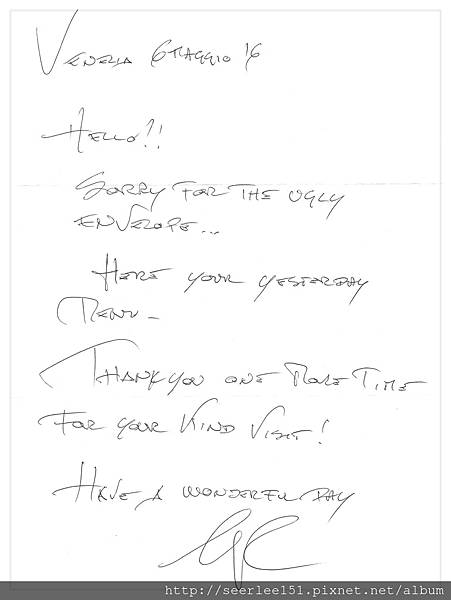 Venezia 6 Maggio '16
Hello!!
Sorry for the ugly
envelope...
Here your yesterday
Menu -
Thank you one more time
for your kind visit!
Have a wonderful day
http://seerlee151.pixnet.net/album